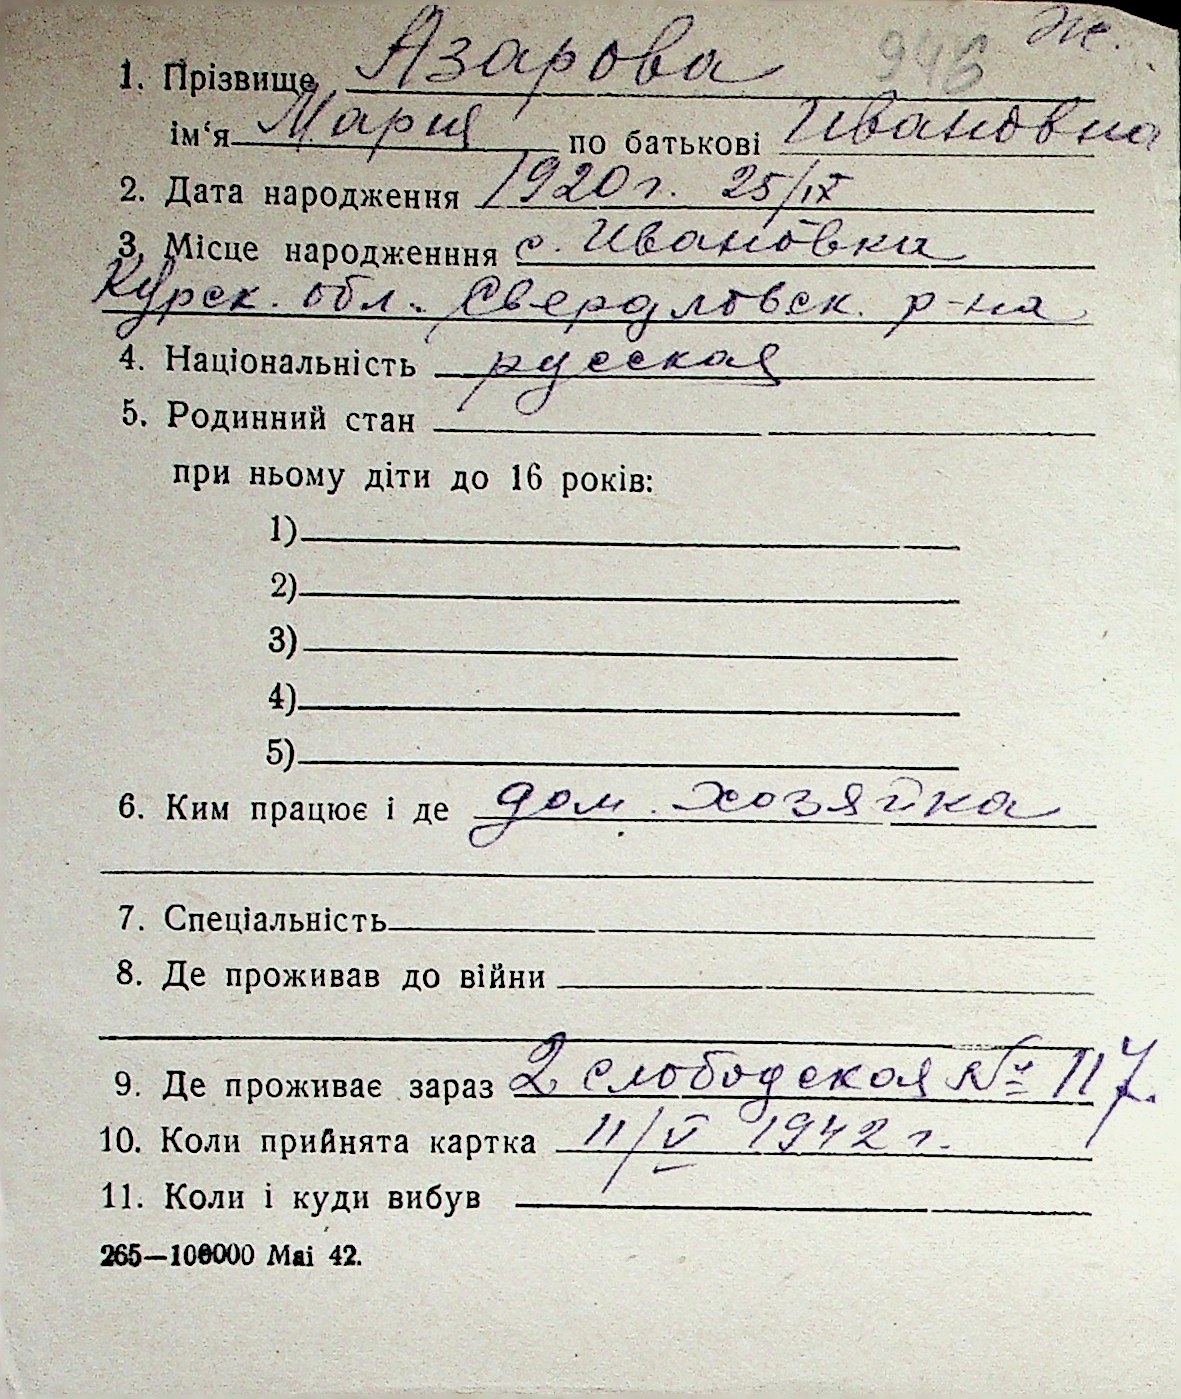 946 Ж.
1. Прізвище Азарова
ім‘я Мария по батькові Ивановна
2. Дата народження 1920 г. 25/IX
3. Місце народженння с. Ивановка
Курск. обл. Свердловск. р-на
4. Національність русская
5. Родинний стан
при ньому діти до 16 років:
1)
2)
3)
4)
5)
6. Ким працює і де дом. хозяйка
7. Спеціальність
8. Де проживав до війни
9. Де проживає зараз 2 слободская № 117.
10. Коли прийнята картка 11/V 1942 г.
11. Коли і куди вибув
265—100000 Mai 42.